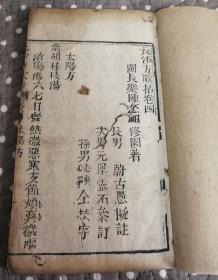 長沙方歌括卷四
閩長樂陳念祖修園著
長男 蔚古愚擬註
次男元犀靈石參訂
孫男
太陽方
柴胡桂枝湯
治傷寒六七日發熱微惡寒支節煩疼微嘔